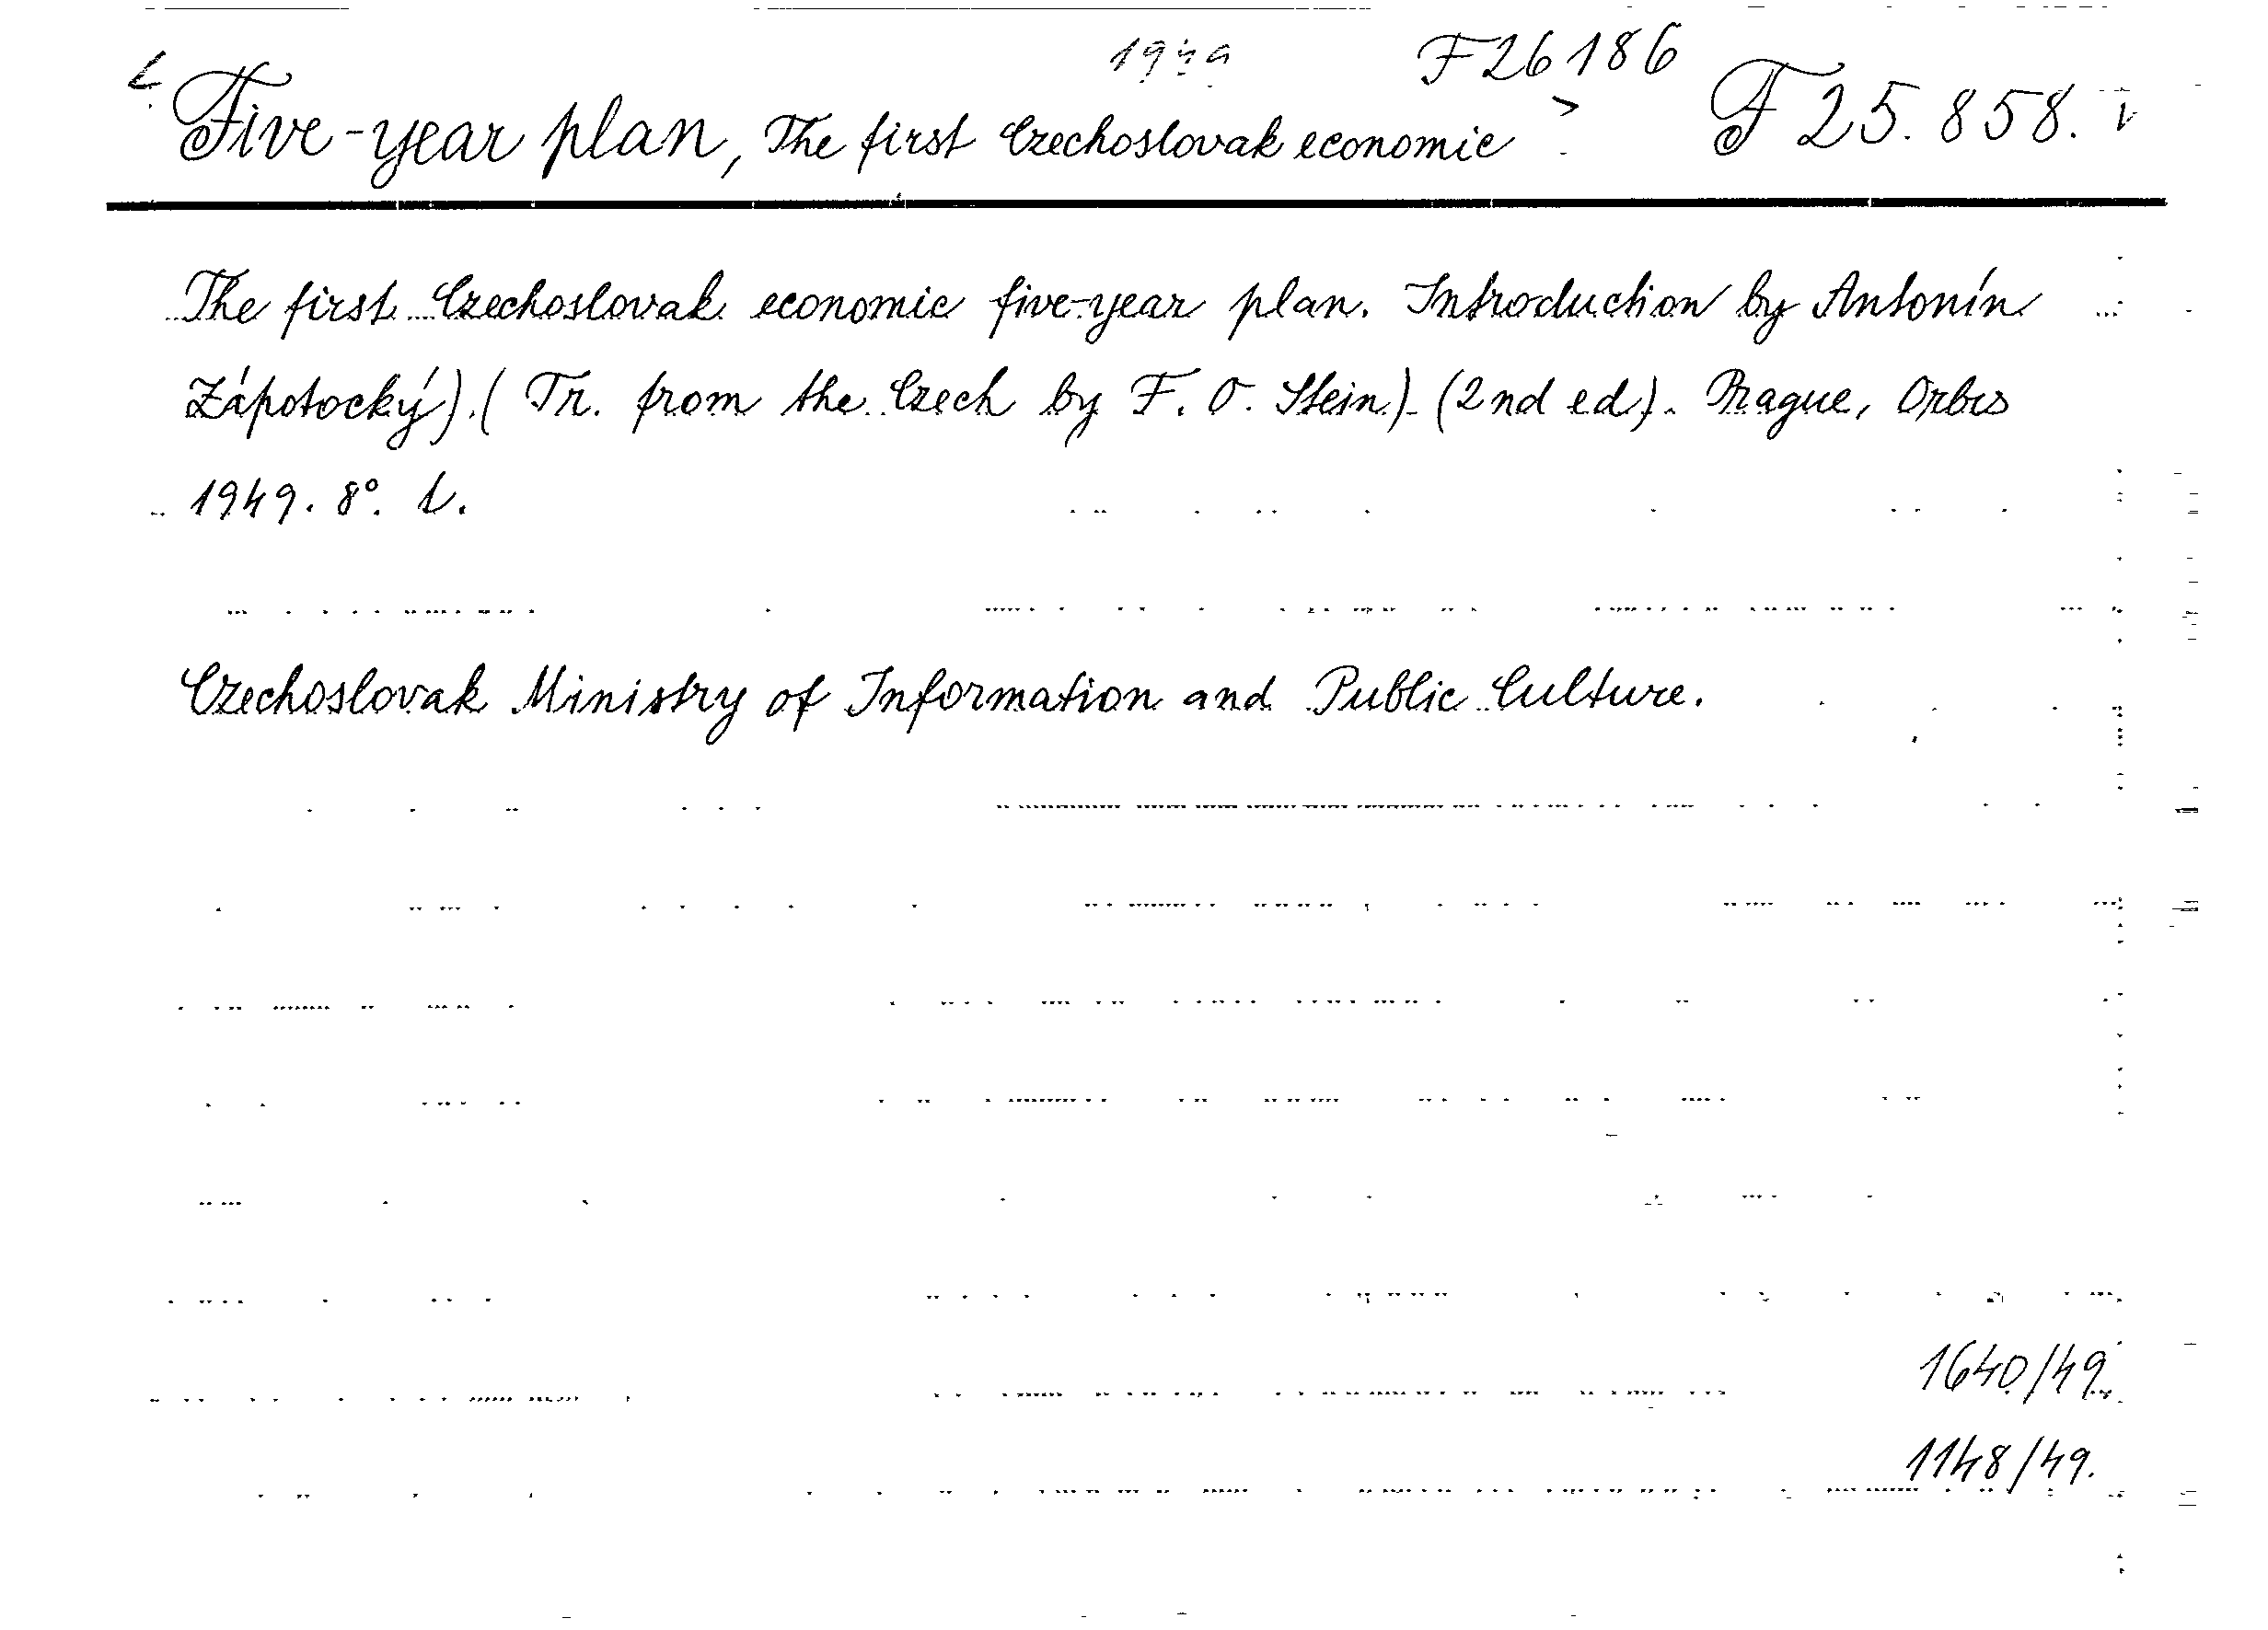 1949 F 26186
< Five-year plan, The first Czechoslovak economic > F 25.858.
The first Czechoslovak economic five-year plan. Introduction by Antonín
Zápotocký).( Tr. from the Czech by F. O. Stein). (2nd ed). Prague, Orbis
1949. 8°.
Czechoslovak Ministry of Information and Public Culture.
1640/49.
1148/49.